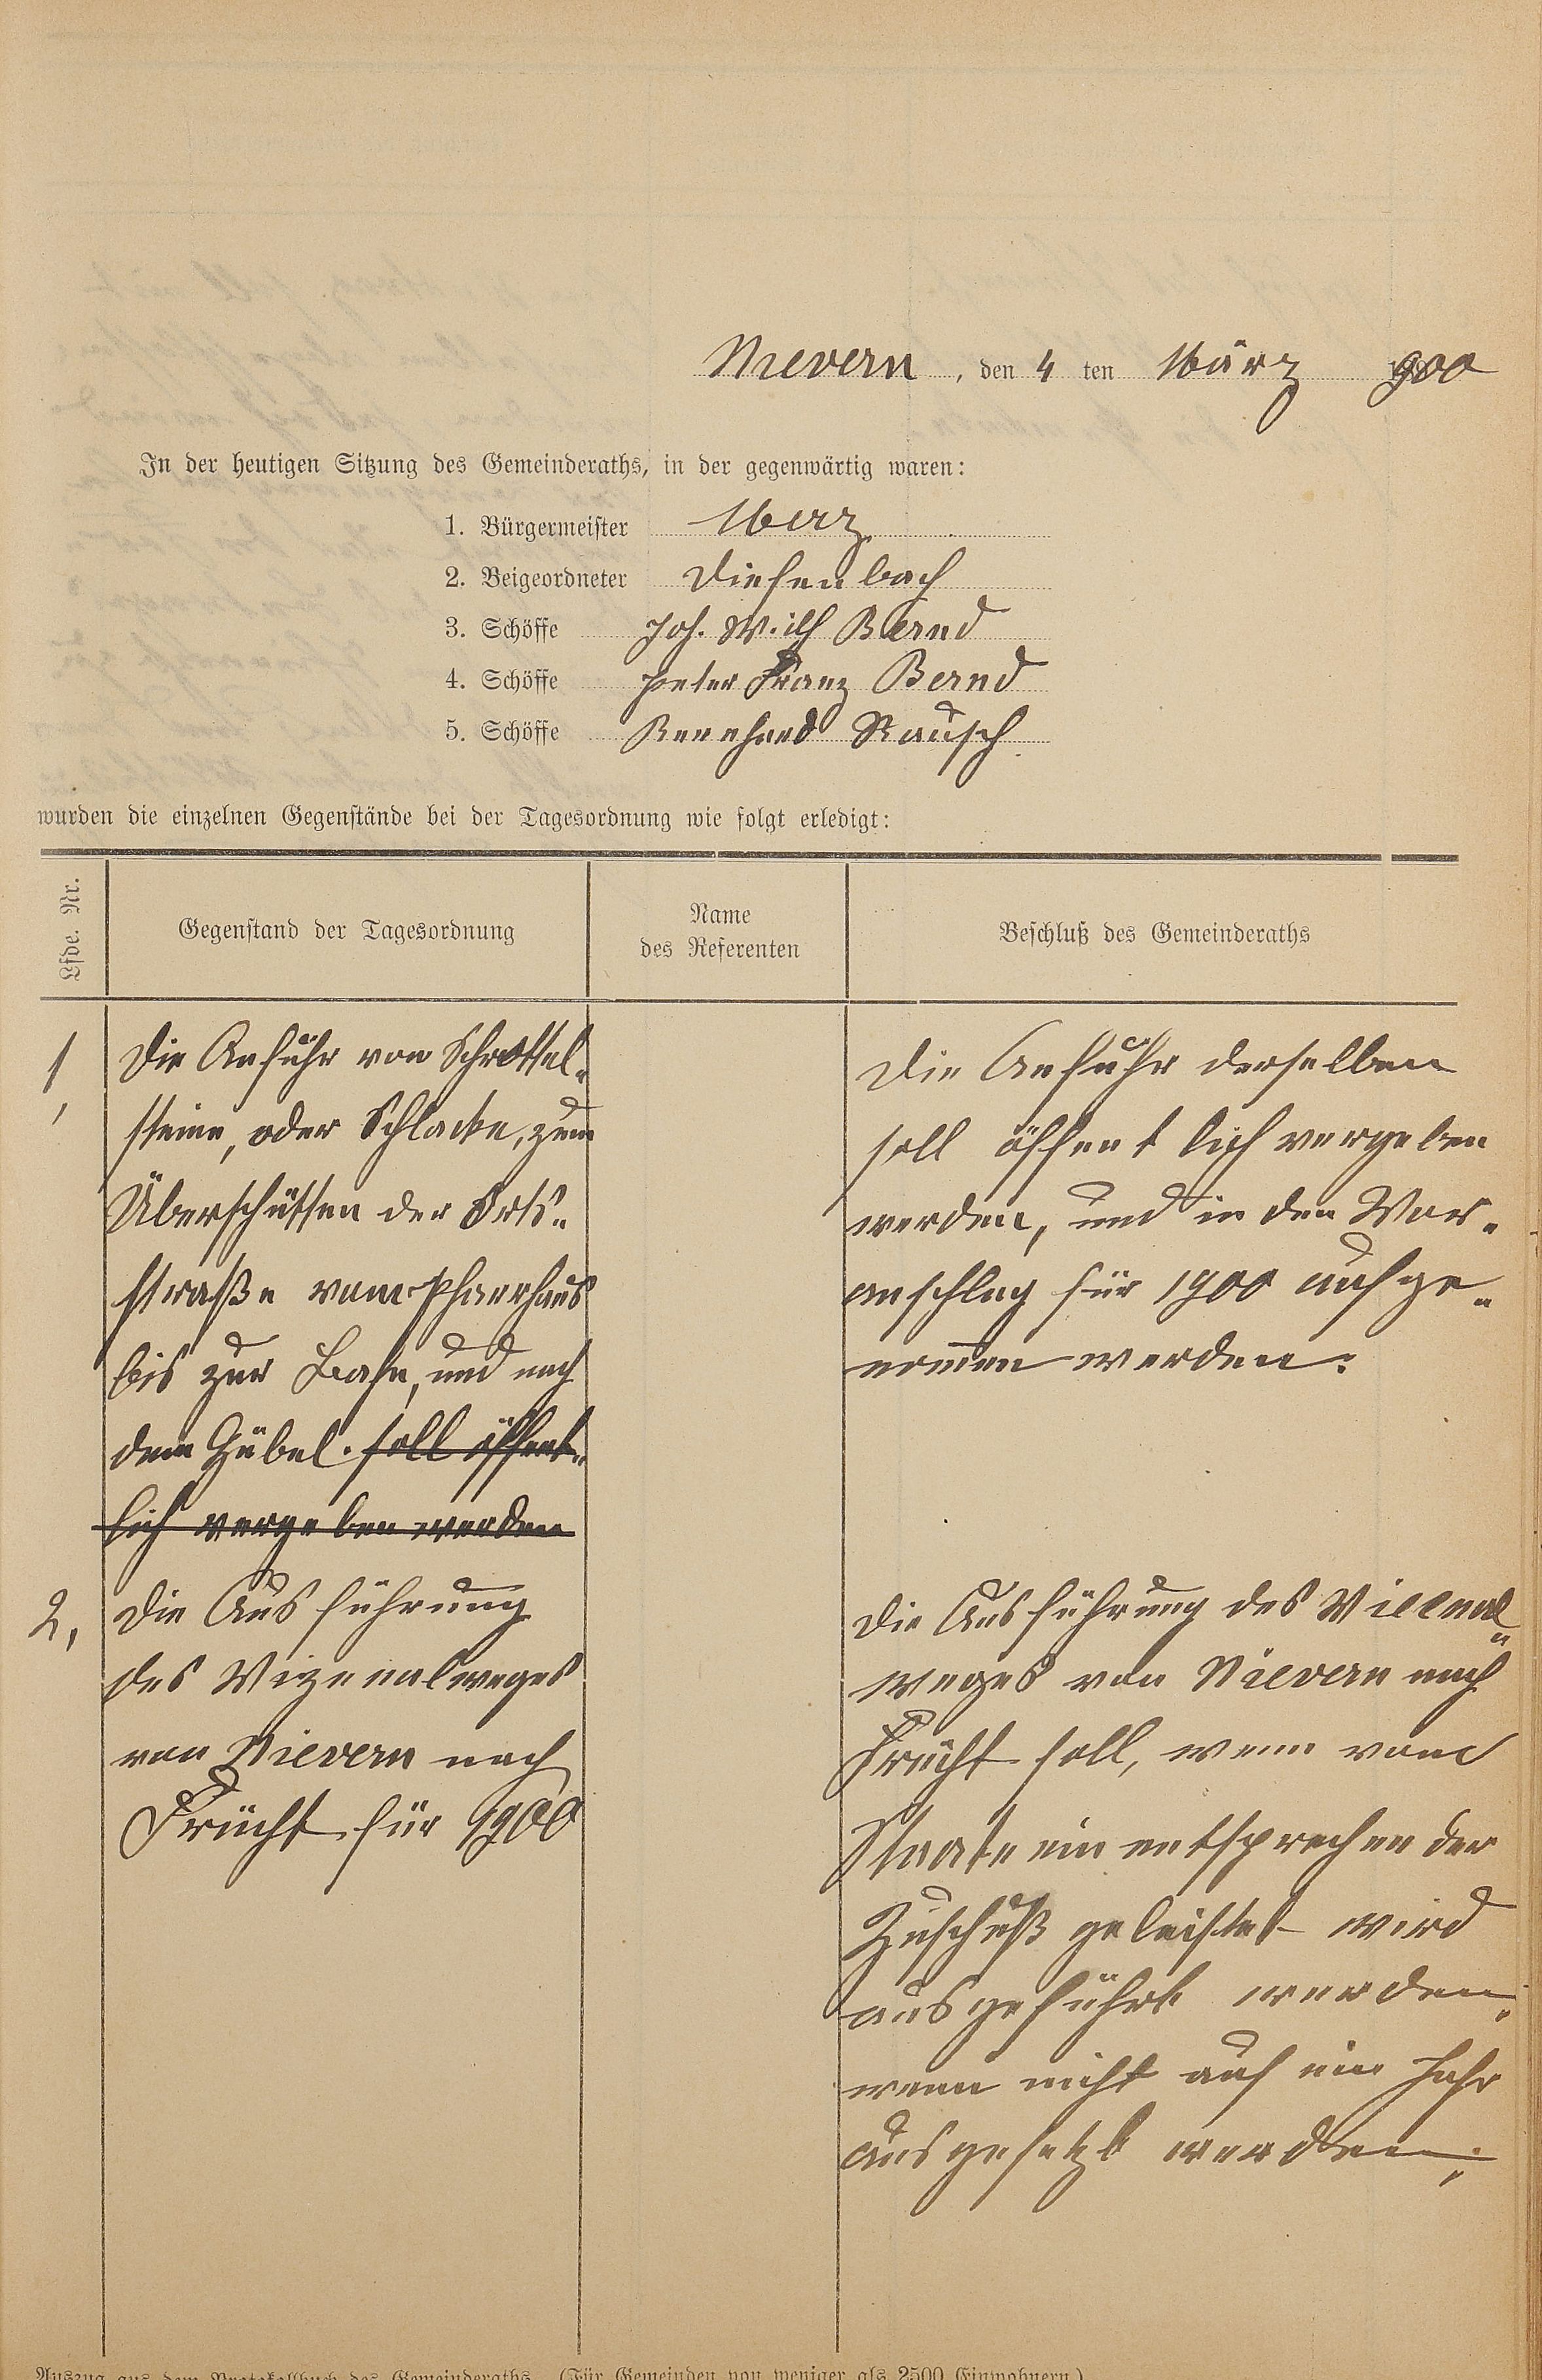 Nievern, den 4 ten März 1900
In der heutigen Sitzung des Gemeinderaths, in der gegenwärtig waren:
1. Bürgermeister Merz
2. Beigeordneter Diefenbach
3. Schöffe Joh. Wilh Bernd
4. Schöffe Peter Franz Bernd
5. Schöffe Bernhard Rausch
wurden die einzelnen Gegenstände bei der Tagesordnung wie folgt erledigt:
Lfde. Nr.
Gegenstand der Tagesordnung
Name
des Referenten
Beschluß des Gemeinderaths
1,
Die Anfuhr von Schrottel-
steine, oder Schlacke, zum
Überschütten der Orts-
straße vom Pfarrhaus
bis zur Bahn, und nach
dem Hübel. soll öffent-
lich vergeben werden
Die Anfuhr derselben
soll öffentlich vergeben
werden, und in den Vor-
anschlag für 1900 aufge-
nommen werden.
2,
Die Ausführung
des Vizenalweges
von Nievern nach
Frücht für 1900
Die Ausführung des Vicenal-
weges von Nievern nach
Frücht soll, wenn vom
Staate ein entsprechender
Zuschuß geleistet wird
ausgeführt werden,
wenn nicht auf ein Jahr
ausgesetzt werden.
Auszug aus dem Protokollbuch des Gemeinderaths. (Für Gemeinden von weniger als 2500 Einwohnern.)